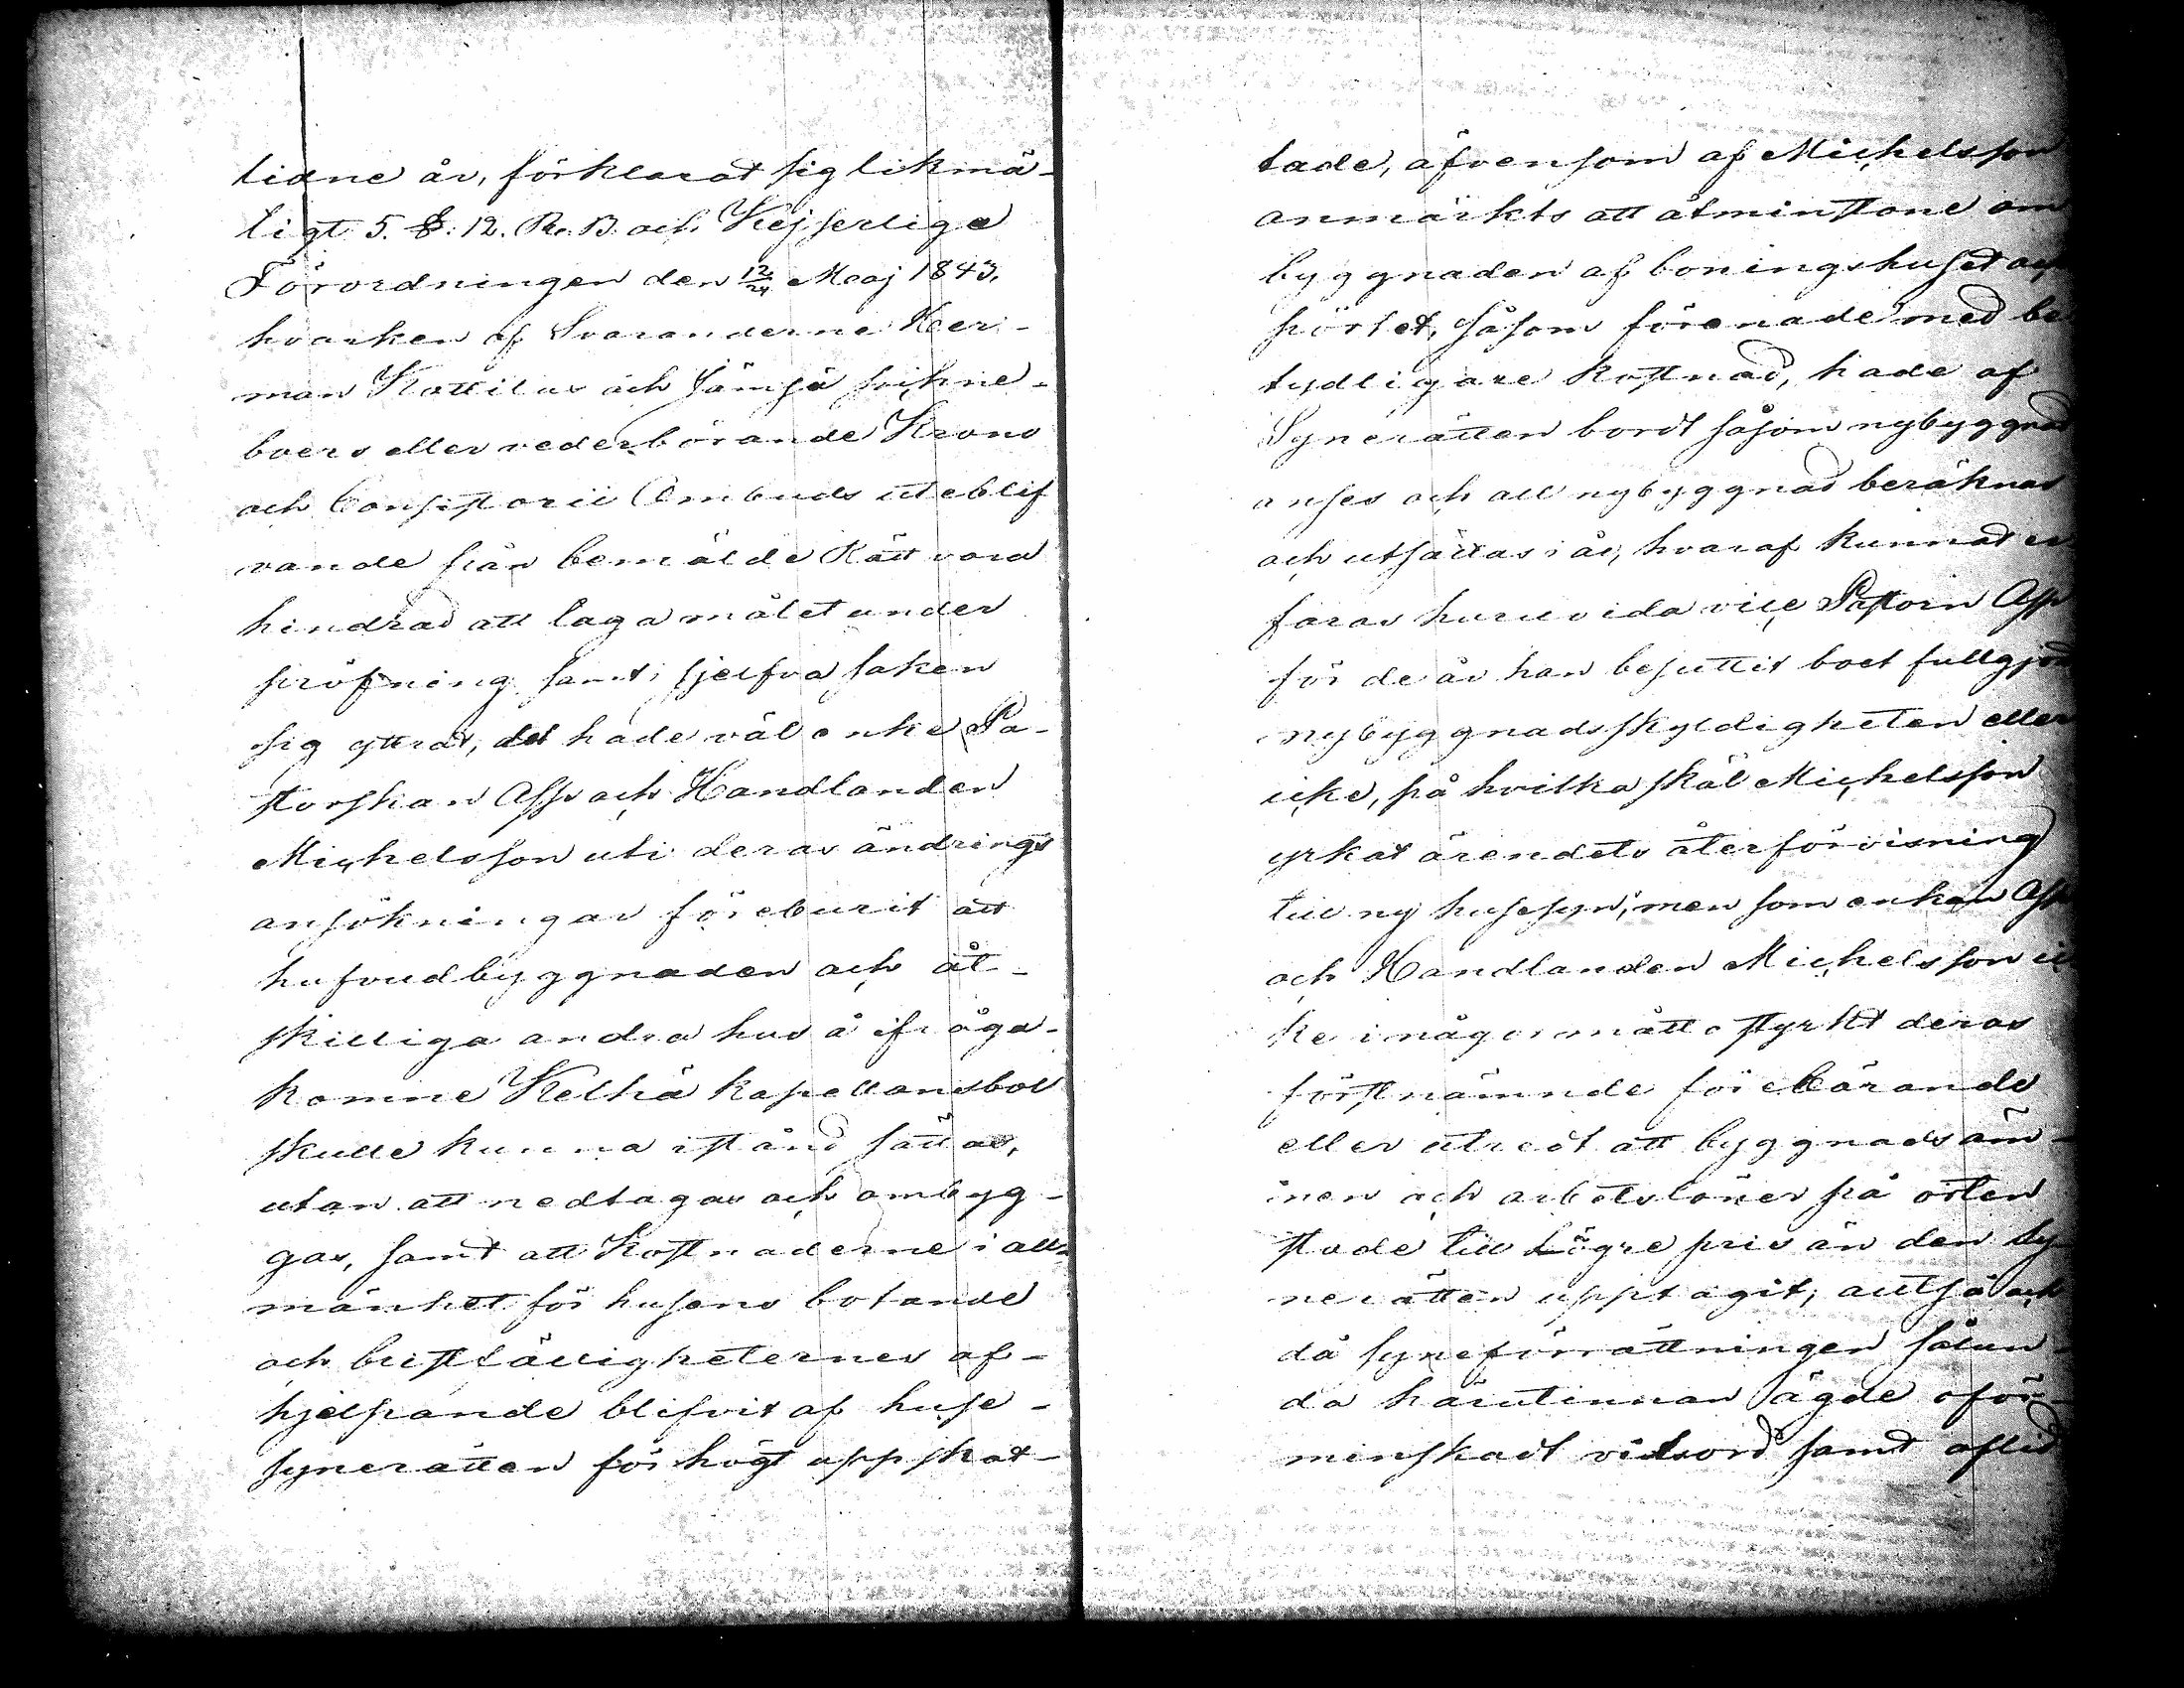 lidne år, förklarat sig likmä-
ligt 5. §. 12. R. B. och Kejserliga
Förordningen den 12/24 Maj 1843,
hvarken af Svaranderne Her-
man Kottilas och Jämsä sockne-
boers eller vederbörande Krono
och Consistorii Ombuds uteblif
vande från bemälde Rätt vara
hindrad att laga målet under
pröfning samt i sjelfva saken
sig yttrat, det hade väl enke Pa-
storskan Asp och Handlanden
Michelsson uti deras ändrings
ansökningar föreburit att
hufvudbyggnaden och åt-
skilliga andra hus å ifråga-
komne Kelhä kapellansbol
skulle kunna istånd sättas,
utan att nedtagas och ombyg-
gas, samt att kostnaderne i all-
mänhet för husens botande
och bristfälligheternes af-
hjelpande blifvit af huse-
synerätten för högt uppskat-
tade, äfvensom af Michelsson
anmärkts att åtminstone om
byggnaden af boningshuset och
pörtet, såsom förenade med be
tydligare kostnad, hade af
Synerätten bordt såsom nybyggnad
anses och all nybyggnad beräknas
och utsättas i år, hvaraf kunnat er
faras huruvida vice Pastorn Asp
för de år han besuttit boet fullgjort
nybyggnadsskyldigheten eller
icke, på hvilka skäl Michelsson
yrkat ärendets återförvisning
till ny husesyn; men som enkan Asp
och Handlanden Michelsson ic
ke i någor måtto styrkt deras
förstnämnde förebärande
eller utredt att byggnadsäm-
nen och arbetslöner på orten
stode till lägre pris än den Sy
nerätten upptagit; alltså och
då syneförrättningen sålun-
da härutinnan ägde oför-
minskadt vitsord samt aflid